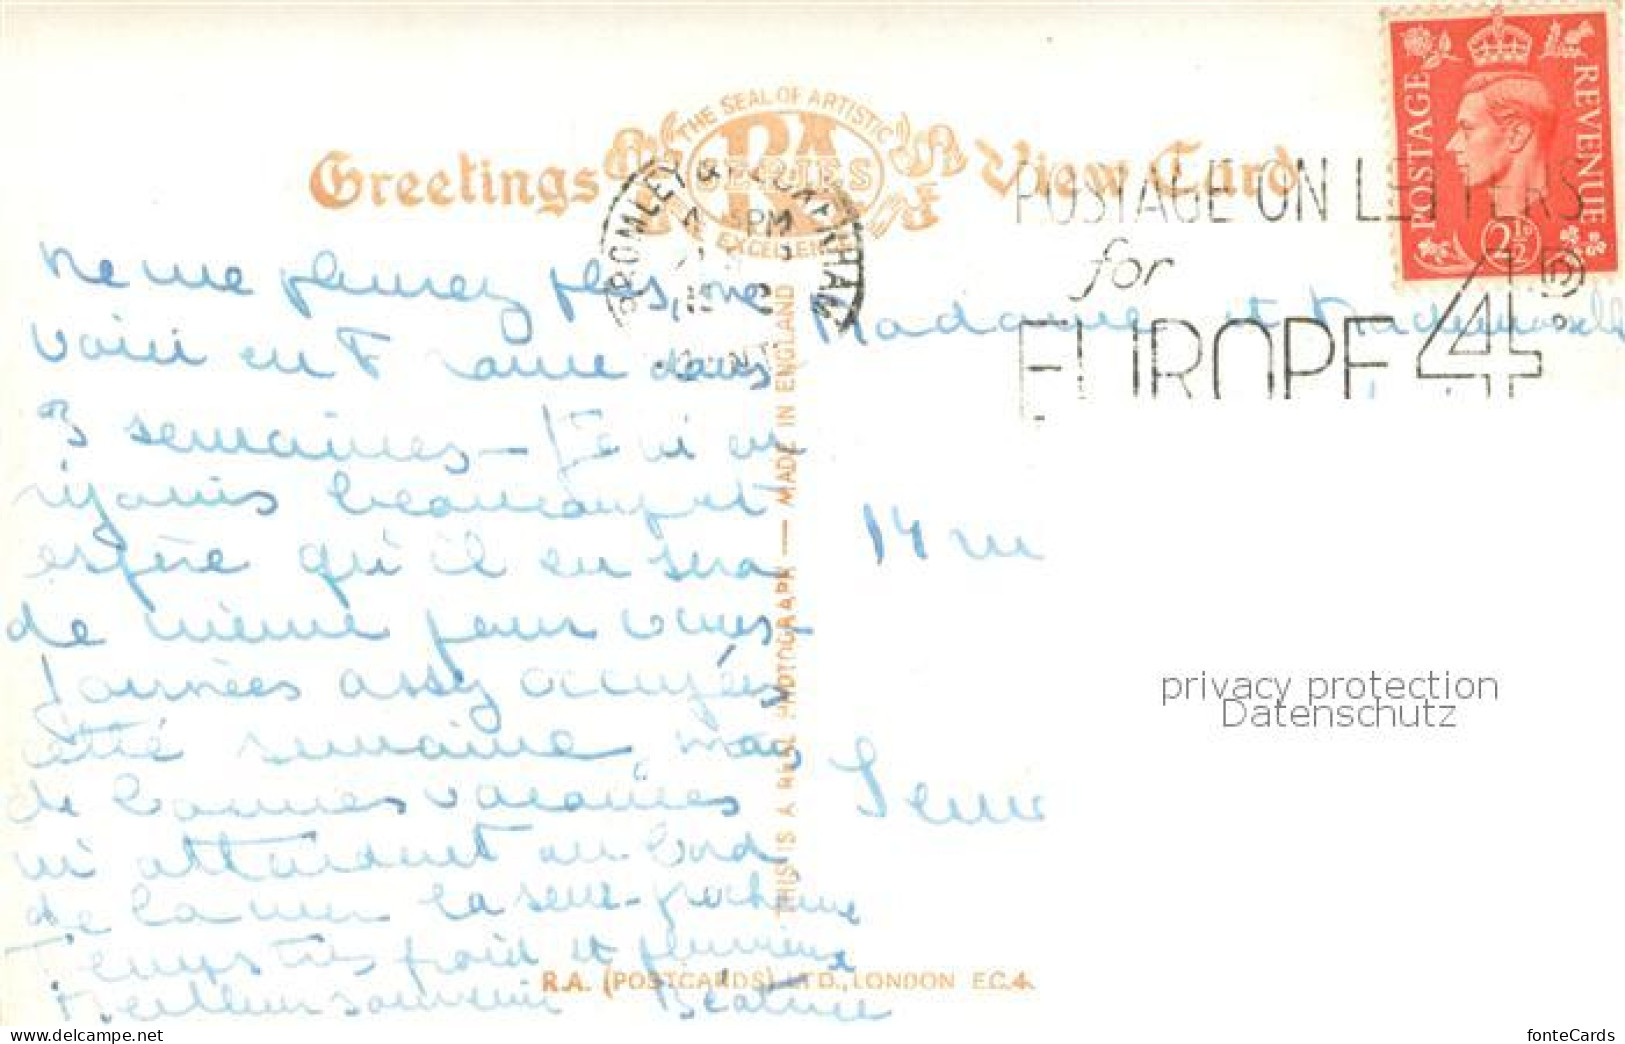 Greetings View Card
THE SEAL OF ARTISTIC
RA
SERIES
EXCELLENCE
BROMLEY & BECKENHAM
PM
KENT
POSTAGE ON LETTERS
for
EUROPE 4D
POSTAGE
REVENUE
2½D
Ne me plaignez plus, me
voici en F ance dans
3 semaines - Je m'en
réjouis beaucoup et
espère qu'il en sera
de même pour vous -
Journées assez occupées
cette semaine, mais
de bonnes vacances
m'attendent au bord
de la mer la sem. prochaine
Temps très froid et pluvieux
Meilleur souvenir Béatrice
Madame et Mademoiselle
14
THIS IS A REAL PHOTOGRAPH — MADE IN ENGLAND
R.A. (POSTCARDS) LTD., LONDON E.C.4.
privacy protection
Datenschutz
and-you.net
fonteCards